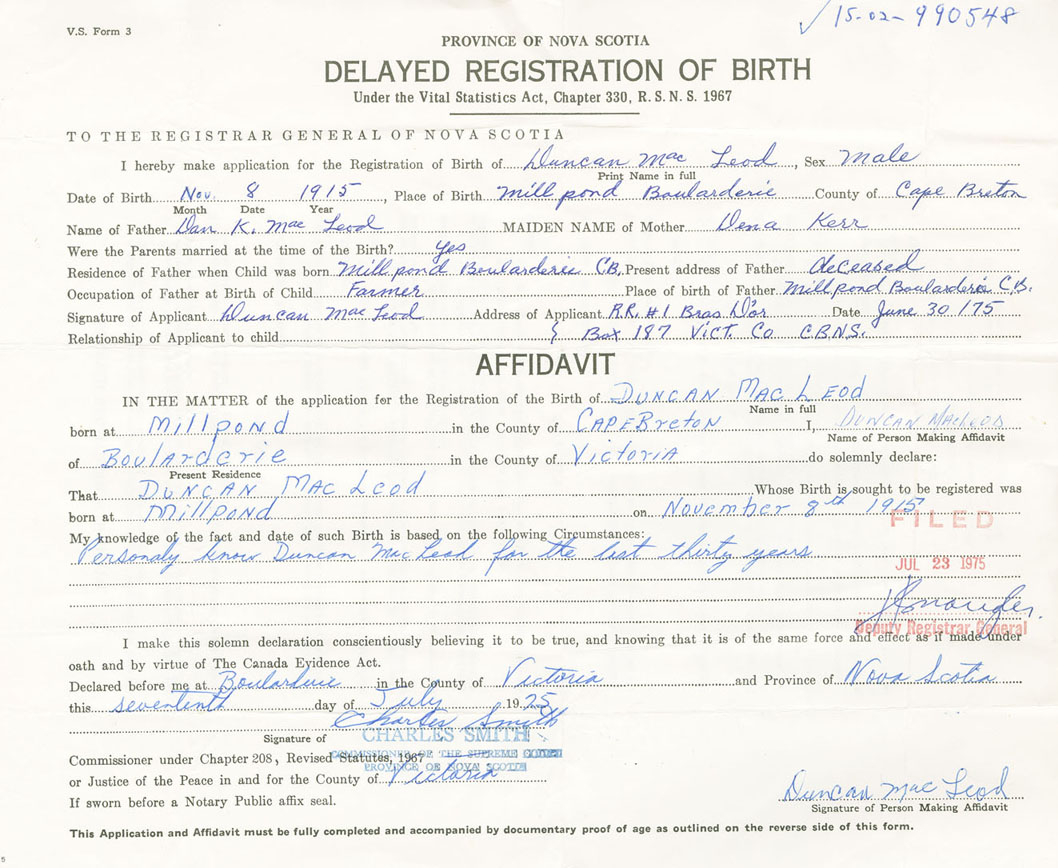 V.S. Form 3
✓ 15-02-990548
PROVINCE OF NOVA SCOTIA
DELAYED REGISTRATION OF BIRTH
Under the Vital Statistics Act, Chapter 330, R. S. N. S. 1967
TO THE REGISTRAR GENERAL OF NOVA SCOTIA
I hereby make application for the Registration of Birth of Duncan Mac Leod, Sex Male
Print Name in full
Date of Birth Nov. 8 1915, Place of Birth Mill pond Boularderie County of Cape Breton
Month Date Year
Name of Father Dan K. Mac Leod MAIDEN NAME of Mother Dena Kerr
Were the Parents married at the time of the Birth? Yes
Residence of Father when Child was born Mill pond Boularderie CB. Present address of Father deceased
Occupation of Father at Birth of Child Farmer Place of birth of Father Mill pond Boularderie C.B.
Signature of Applicant Duncan Mac Leod Address of Applicant R.R. #1 Bras D'or Date June 30/75
Relationship of Applicant to child Box 187 Vict. Co C.B.N.S.
AFFIDAVIT
IN THE MATTER of the application for the Registration of the Birth of DUNCAN MAC LEOD
Name in full
born at Millpond in the County of CAPE BRETON I, DUNCAN MACLEOD
Name of Person Making Affidavit
of Boularderie in the County of Victoria do solemnly declare:
Present Residence
That DUNCAN MAC LEOD Whose Birth is sought to be registered was
born at Millpond on November 8th 1915
FILED
My knowledge of the fact and date of such Birth is based on the following Circumstances:
Personaly know Duncan MacLeod for the last thirty years
JUL 23 1975
Deputy Registrar General
I make this solemn declaration conscientiously believing it to be true, and knowing that it is of the same force and effect as if made under
oath and by virtue of The Canada Evidence Act.
Declared before me at Boularderie in the County of Victoria and Province of Nova Scotia
this seventeenth day of July 1975
Charles Smith
Signature of CHARLES SMITH
COMMISSIONER OF THE SUPREME COURT
Commissioner under Chapter 208, Revised Statutes, 1967
PROVINCE OF NOVA SCOTIA
or Justice of the Peace in and for the County of Victoria
If sworn before a Notary Public affix seal.
Duncan Mac Leod
Signature of Person Making Affidavit
This Application and Affidavit must be fully completed and accompanied by documentary proof of age as outlined on the reverse side of this form.
5